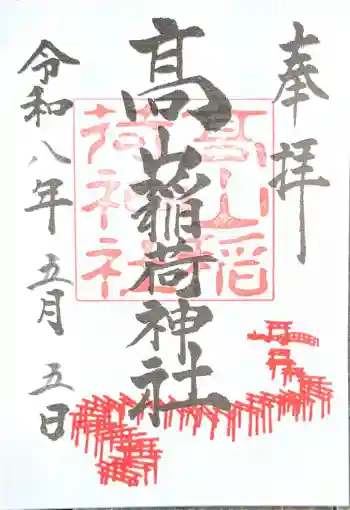 奉拝
髙山稲荷神社
髙山稲荷神社
令和八年 五月 五日